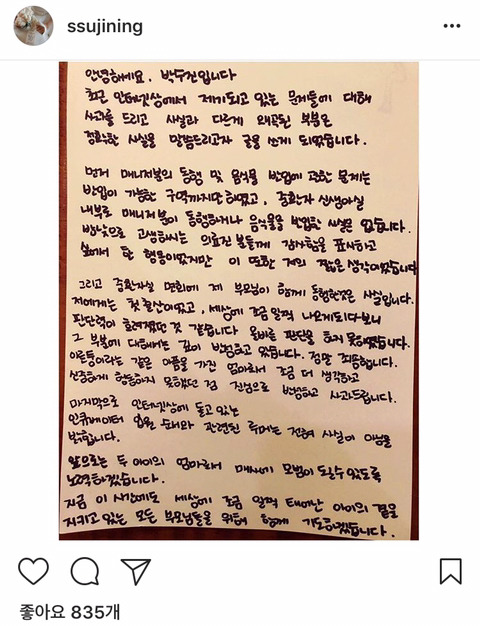 ssujining
안녕하세요, 박수진입니다
최근 인터넷상에서 제기되고 있는 문제들에 대해
사과를 드리고 사실과 다르게 왜곡된 부분은
정확한 사실을 말씀드리고자 글을 쓰게 되었습니다.
먼저 매니저분의 동행 및 음식물 반입에 관한 문제는
반입이 가능한 구역까지만 하였고, 중환자 선생아실
내부로 매니저분이 동행하거나 음식물을 반입한 사실은 없습니다.
밤낮으로 고생하시는 의료진 분들께 감사함을 표시하고
싶어서 한 행동이었지만 이 또한 저의 짧은 생각이었습니다
그리고 중환자실 면회에 제 부모님이 함께 동행한것은 사실입니다.
저에게는 첫 출산이었고, 세상에 조금 일찍 나오게되다보니
판단력이 흐려졌던 것 같습니다 올바른 판단을 하지 못하였습니다.
그 부분에 대해서는 깊이 반성하고 있습니다. 정말 죄송합니다.
이른둥이라는 같은 아픔을 가진 엄마로서 조금 더 생각하고
신중하게 행동하지 못했던 점 진심으로 반성하고 사과드립니다.
마지막으로 인터넷상에 돌고 있는
인큐베이터 입원 순서와 관련된 루머는 전혀 사실이 아님을
밝힙니다.
앞으로는 두 아이의 엄마로서 매사에 모범이 되실수있도록
노력하겠습니다.
지금 이 시간에도 세상에 조금 일찍 태어난 아이의 곁을
지키고 있는 모든 부모님들을 위해 함께 기도하겠습니다.
좋아요 835개